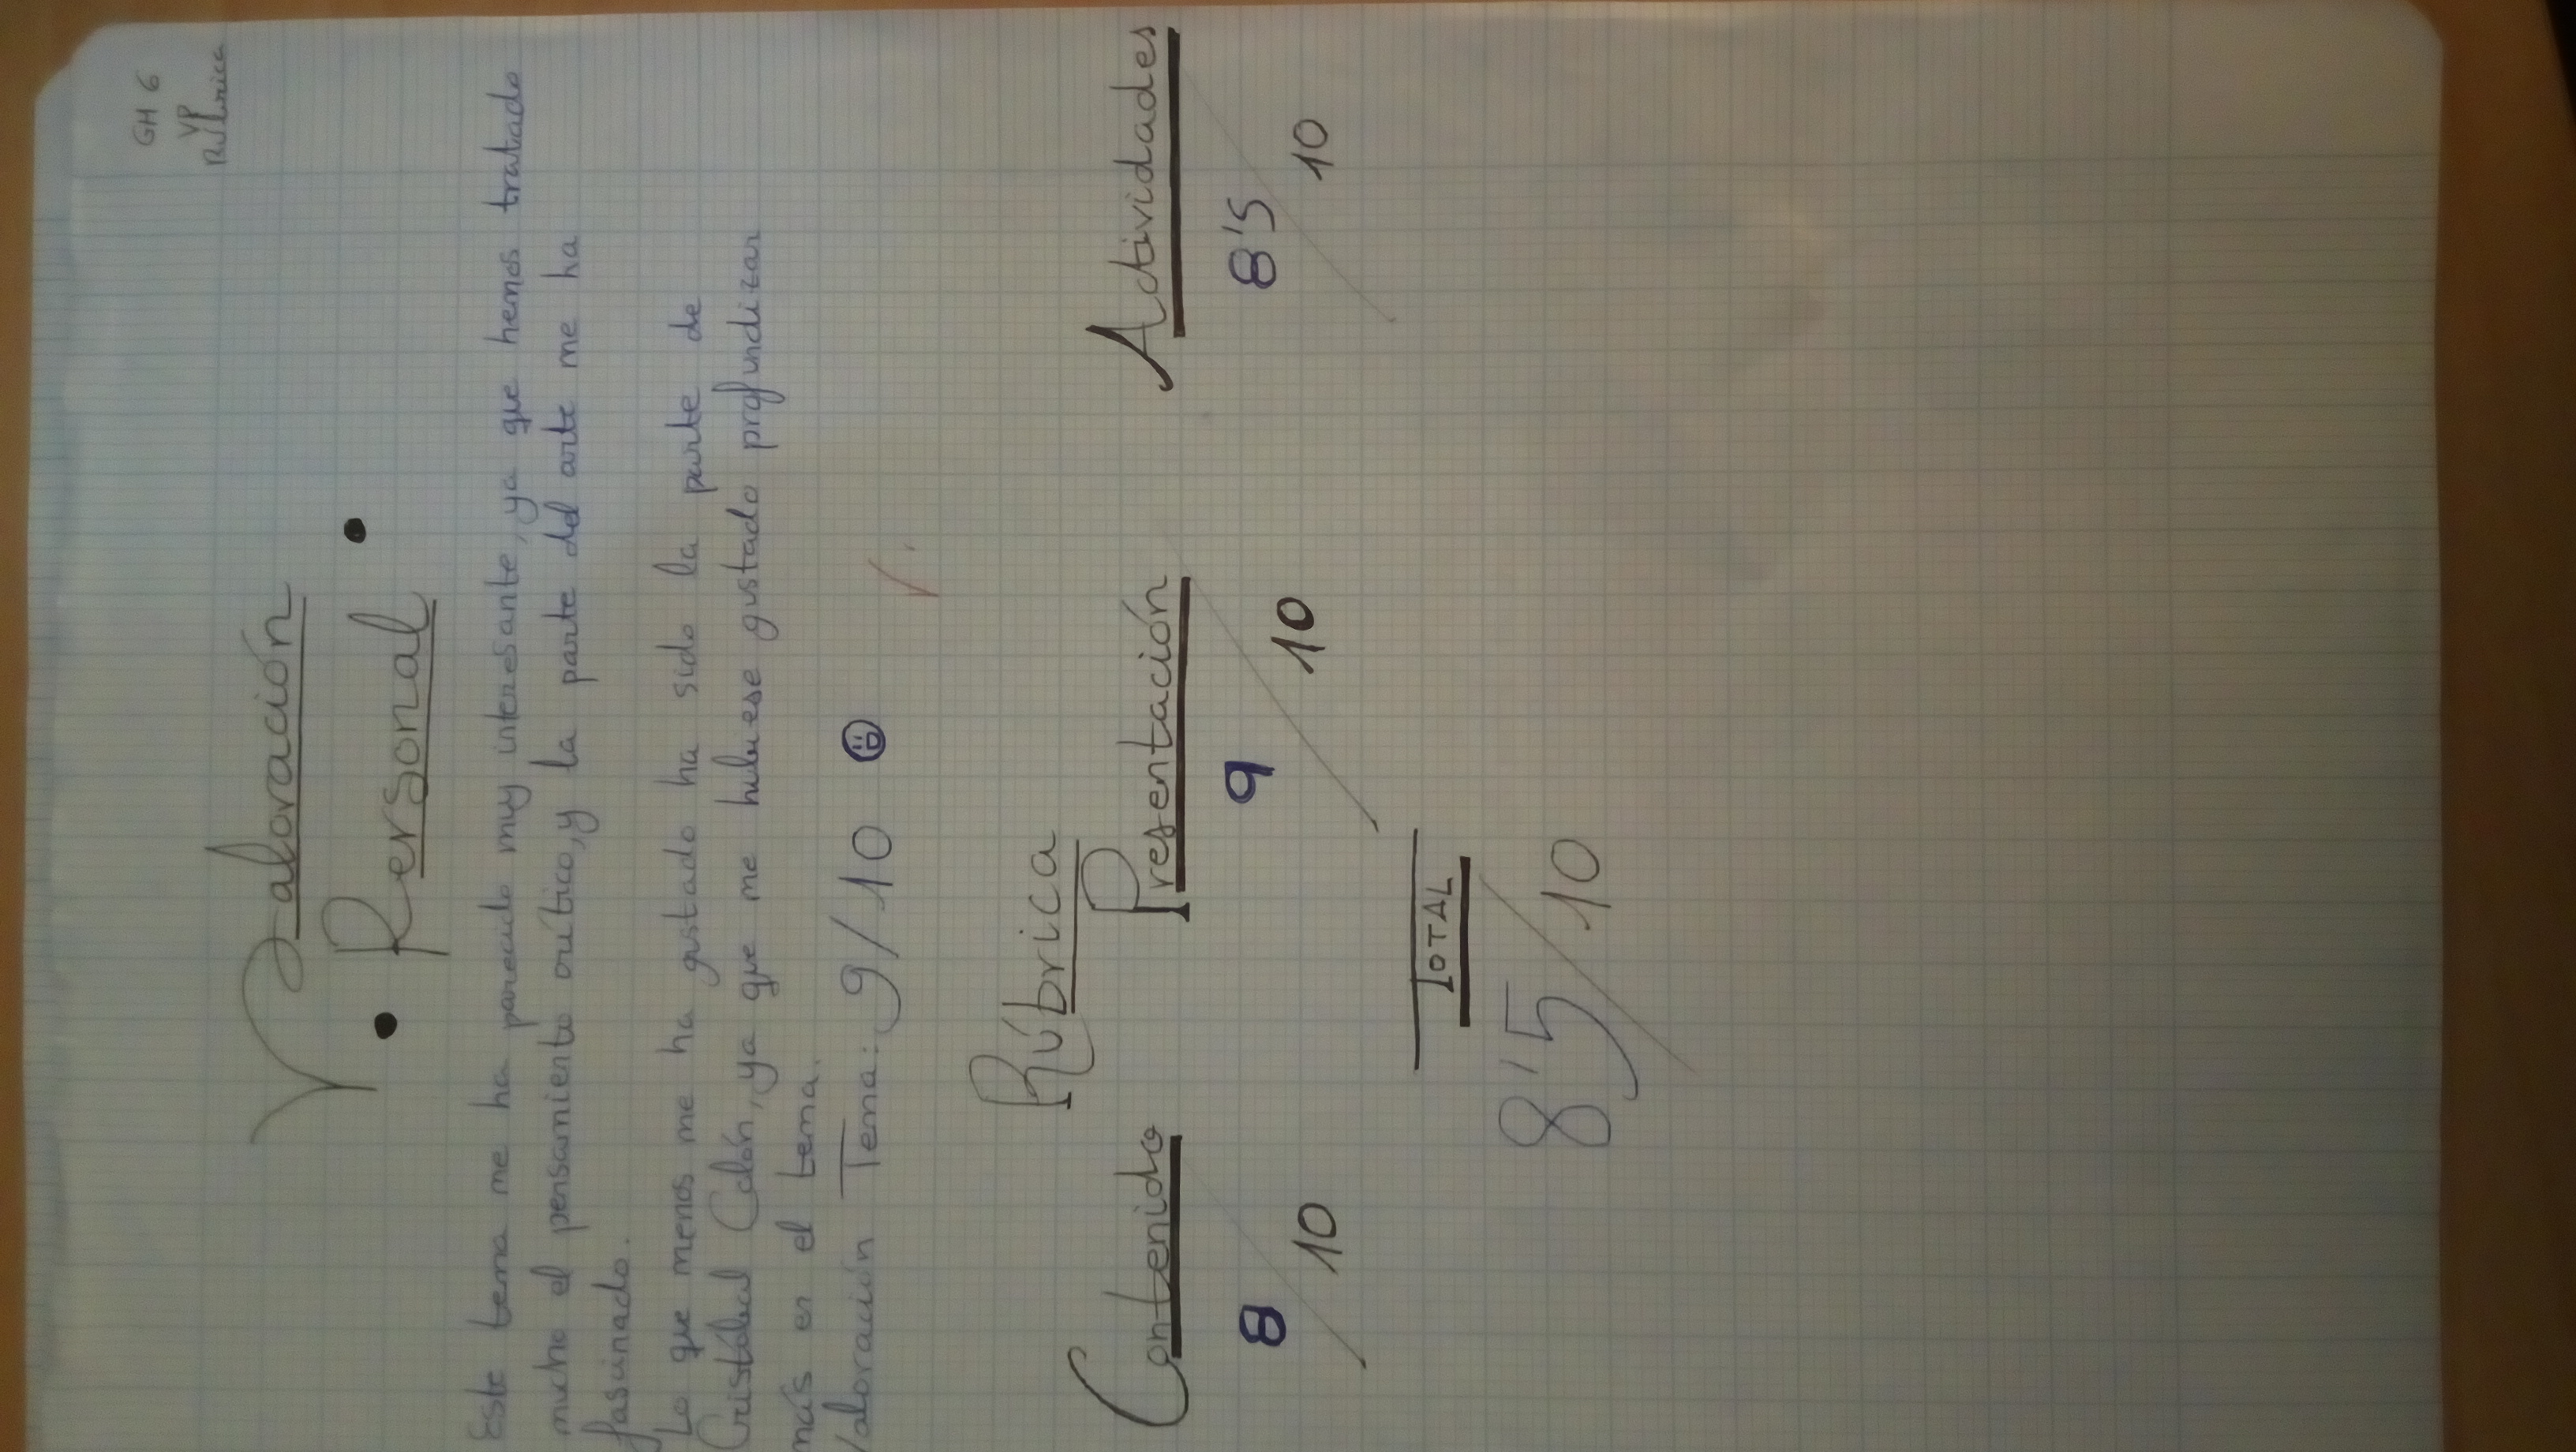 GH 6
VP
Rúbrica
Valoración
• Personal •
Este tema me ha parecido muy interesante, ya que hemos tratado
mucho el pensamiento crítico, y la parte del arte me ha
fascinado.
Lo que menos me ha gustado ha sido la parte de
Cristóbal Colón, ya que me hubiese gustado profundizar
más en el tema.
Valoración Tema: 9/10
Rúbrica
Contenido Presentación Actividades
8/10 9/10 8'5/10
TOTAL
8'5/10